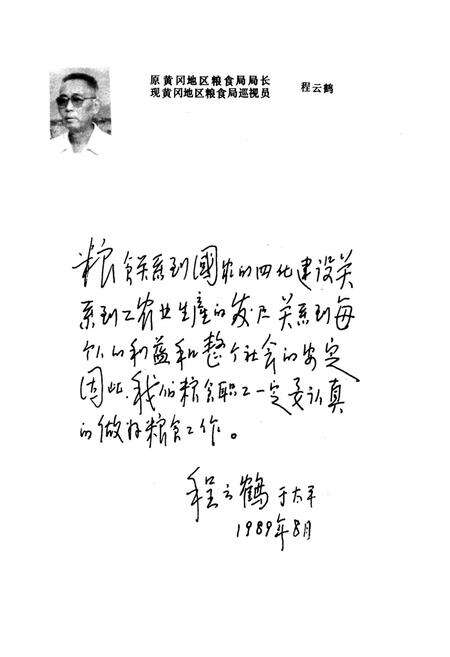 原黄冈地区粮食局局长
现黄冈地区粮食局巡视员
程云鹤
粮食关系到國家的四化建设关
系到工农业生產的发展关系到每
个人的利益和整个社会的安定
因此,我们粮食职工一定要认真
的做好粮食工作。
程云鹤于太平
1989年8月